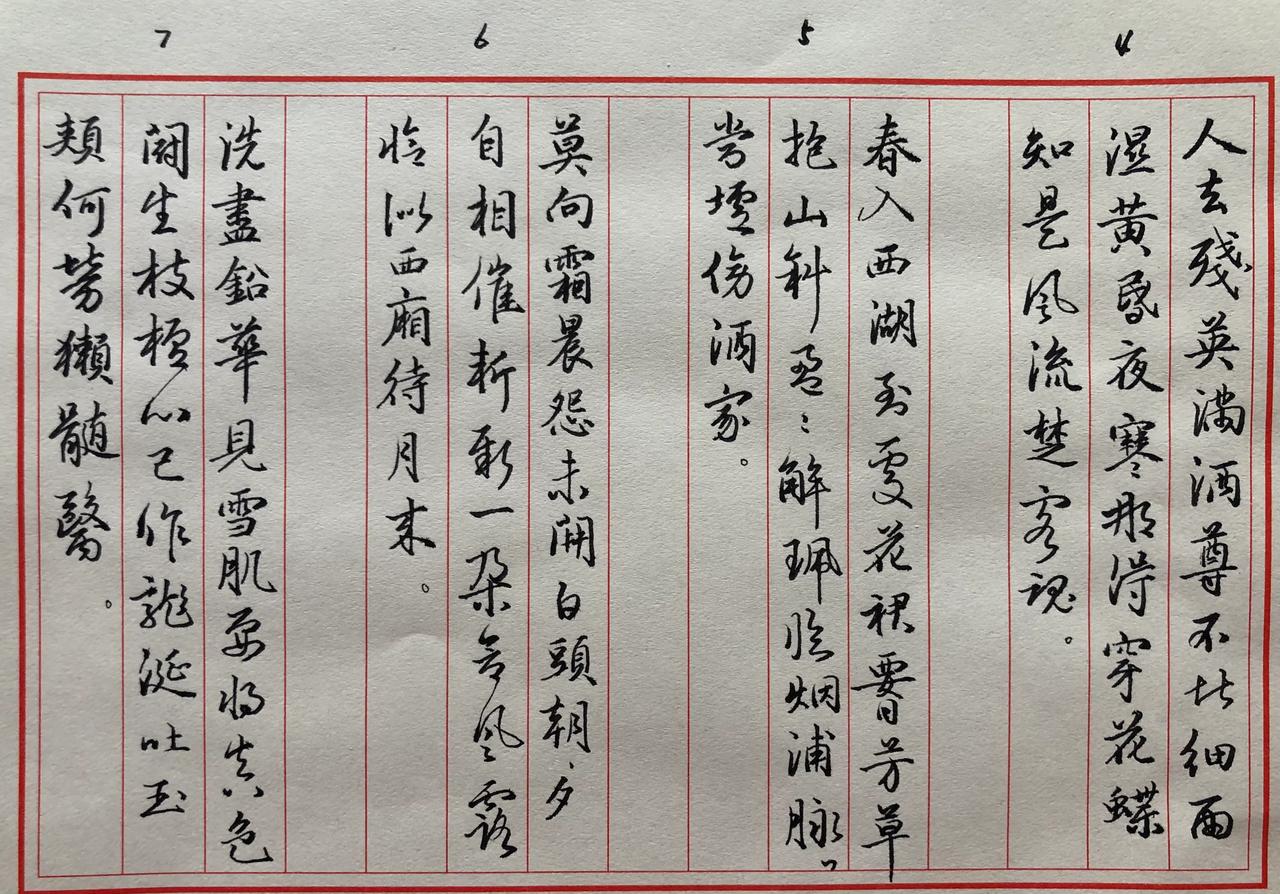 4
人去殘英滿酒尊不比细雨
湿黄昏夜寒那得穿花蝶
知是风流楚客魂。
5
春入西湖到處花裙腰芳草
抱山斜盈々解珮臨烟浦脉々
當壚傍酒家。
6
莫向霜晨怨未開白頭朝夕
自相催斬新一朶含風露
恰似西廂待月來。
7
洗盡鉛華見雪肌要將真色
鬭生枝檀心已作龍涎吐玉
頰何勞獺髓醫。